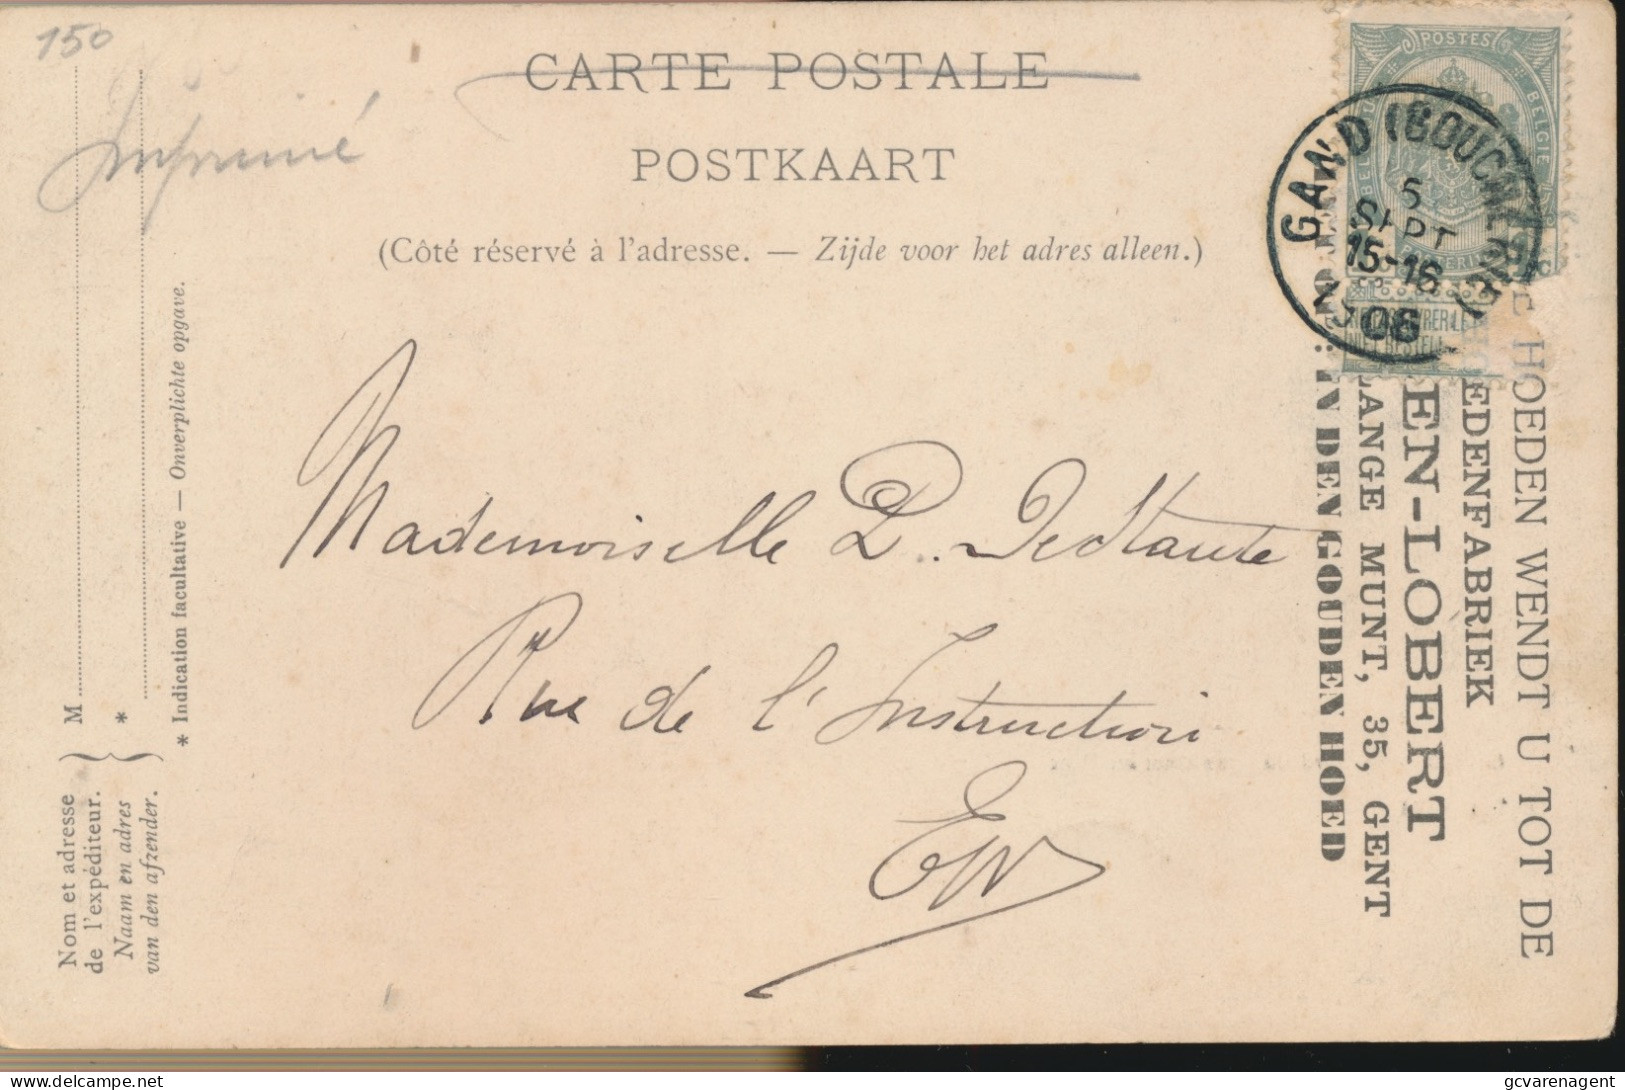 150
Imprimé
CARTE POSTALE
POSTKAART
(Côté réservé à l'adresse. — Zijde voor het adres alleen.)
POSTES
BELGIE
GAND (BOUCHERIE)
5
SEPT
15-16
1906
Mademoiselle D.
Rue de l'Instruction
EV
M
*
* Indication facultative — Onverplichte opgave.
Nom et adresse
de l'expéditeur.
Naam en adres
van den afzender.
HOEDEN WENDT U TOT DE
EDENFABRIEK
EN-LOBERT
LANGE MUNT, 35, GENT
IN DEN GOUDEN HOED
delcampe.net
gcvarenagent